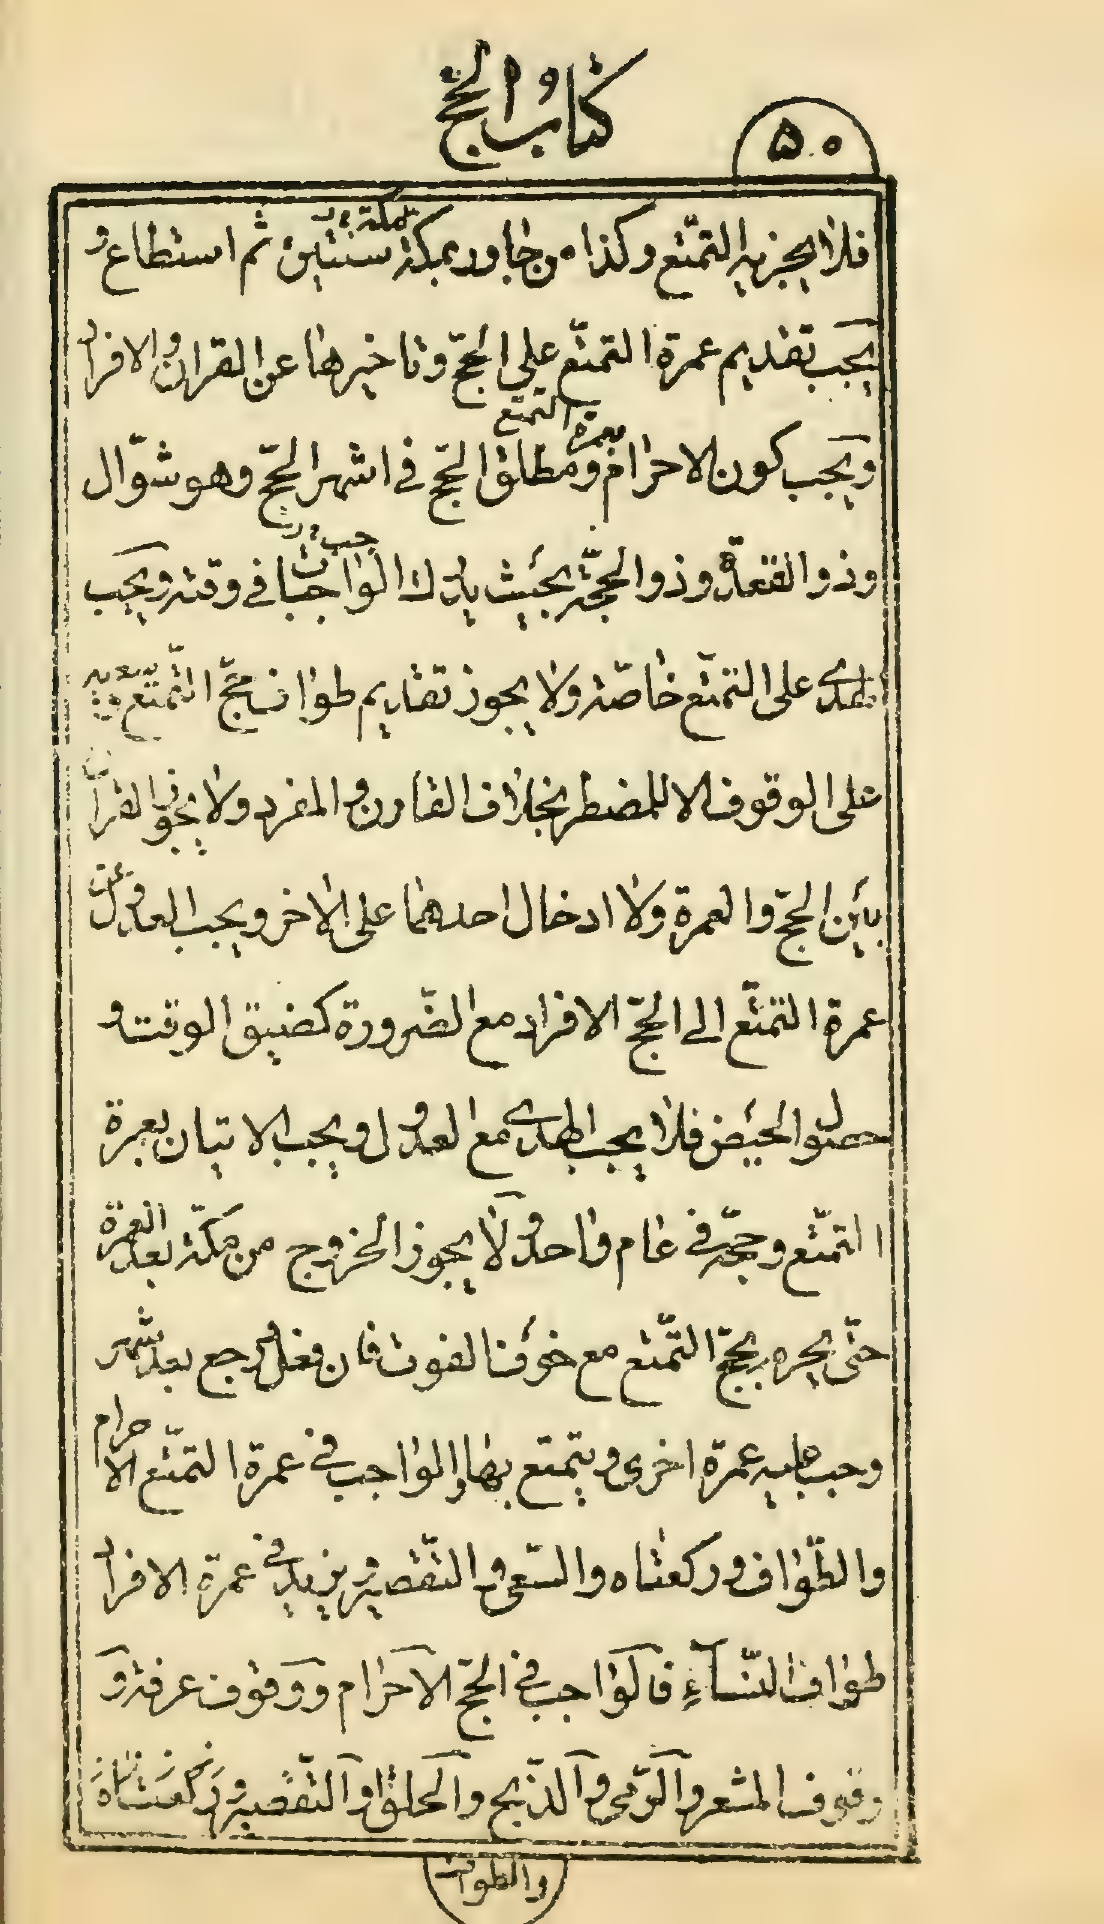 كتاب الحج
۵۰
فلا يجزيه التمتع وكذا من جاور بمكة سنتين ثم استطاع و
يجب تقديم عمرة التمتع على الحجّ وتاخيرها عن القران والافراد
ويجب كون الاحرام بعمرة التمتع ومطلق الحجّ في اشهر الحجّ وهو شوّال
وذو القعدة وذو الحجّة بحيث يدرك الواجبات في وقته ويجب
الهدى على التمتّع خاصّة ولا يجوز تقديم طواف حجّ التّمتّع وسعيه
على الوقوف الا للمضطر بخلاف القارن والمفرد ولا يجوز القران
بين الحجّ والعمرة ولا ادخال احدهما على الاخر ويجب العدول عن
عمرة التمتّع الى الحجّ الافراد مع الضّرورة كضيق الوقت و
حصول الحيض فلا يجب الهدى مع العدول ويجب الاتيان بعمرة
التمتّع وحجّه في عام واحد ولا يجوز الخروج من مكّة بعد العمرة
حتّى يحرم بحجّ التّمتع مع خوف الفوت فان فعل ورجع بعد شهر
وجب عليه عمرة اخرى ويتمتع بها والواجب في عمرة التمتّع الاحرام
والطّواف وركعتاه والسّعى والتّقصير ويزيد في عمرة الافراد
طواف النّسآء فالواجب في الحجّ الاحرام ووقوف عرفة و
وقوف المشعر والرّمى والذّبح والحلق او التّقصير وركعتاه
والطواف